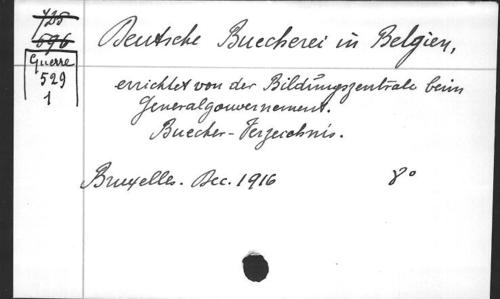 725
596
Guerre
529
1
Deutsche Buecherei in Belgien,
errichtet von der Bildungszentrale beim
Generalgouvernement.
Buecher-Verzeichnis.
Bruxelles. Dec. 1916 8°